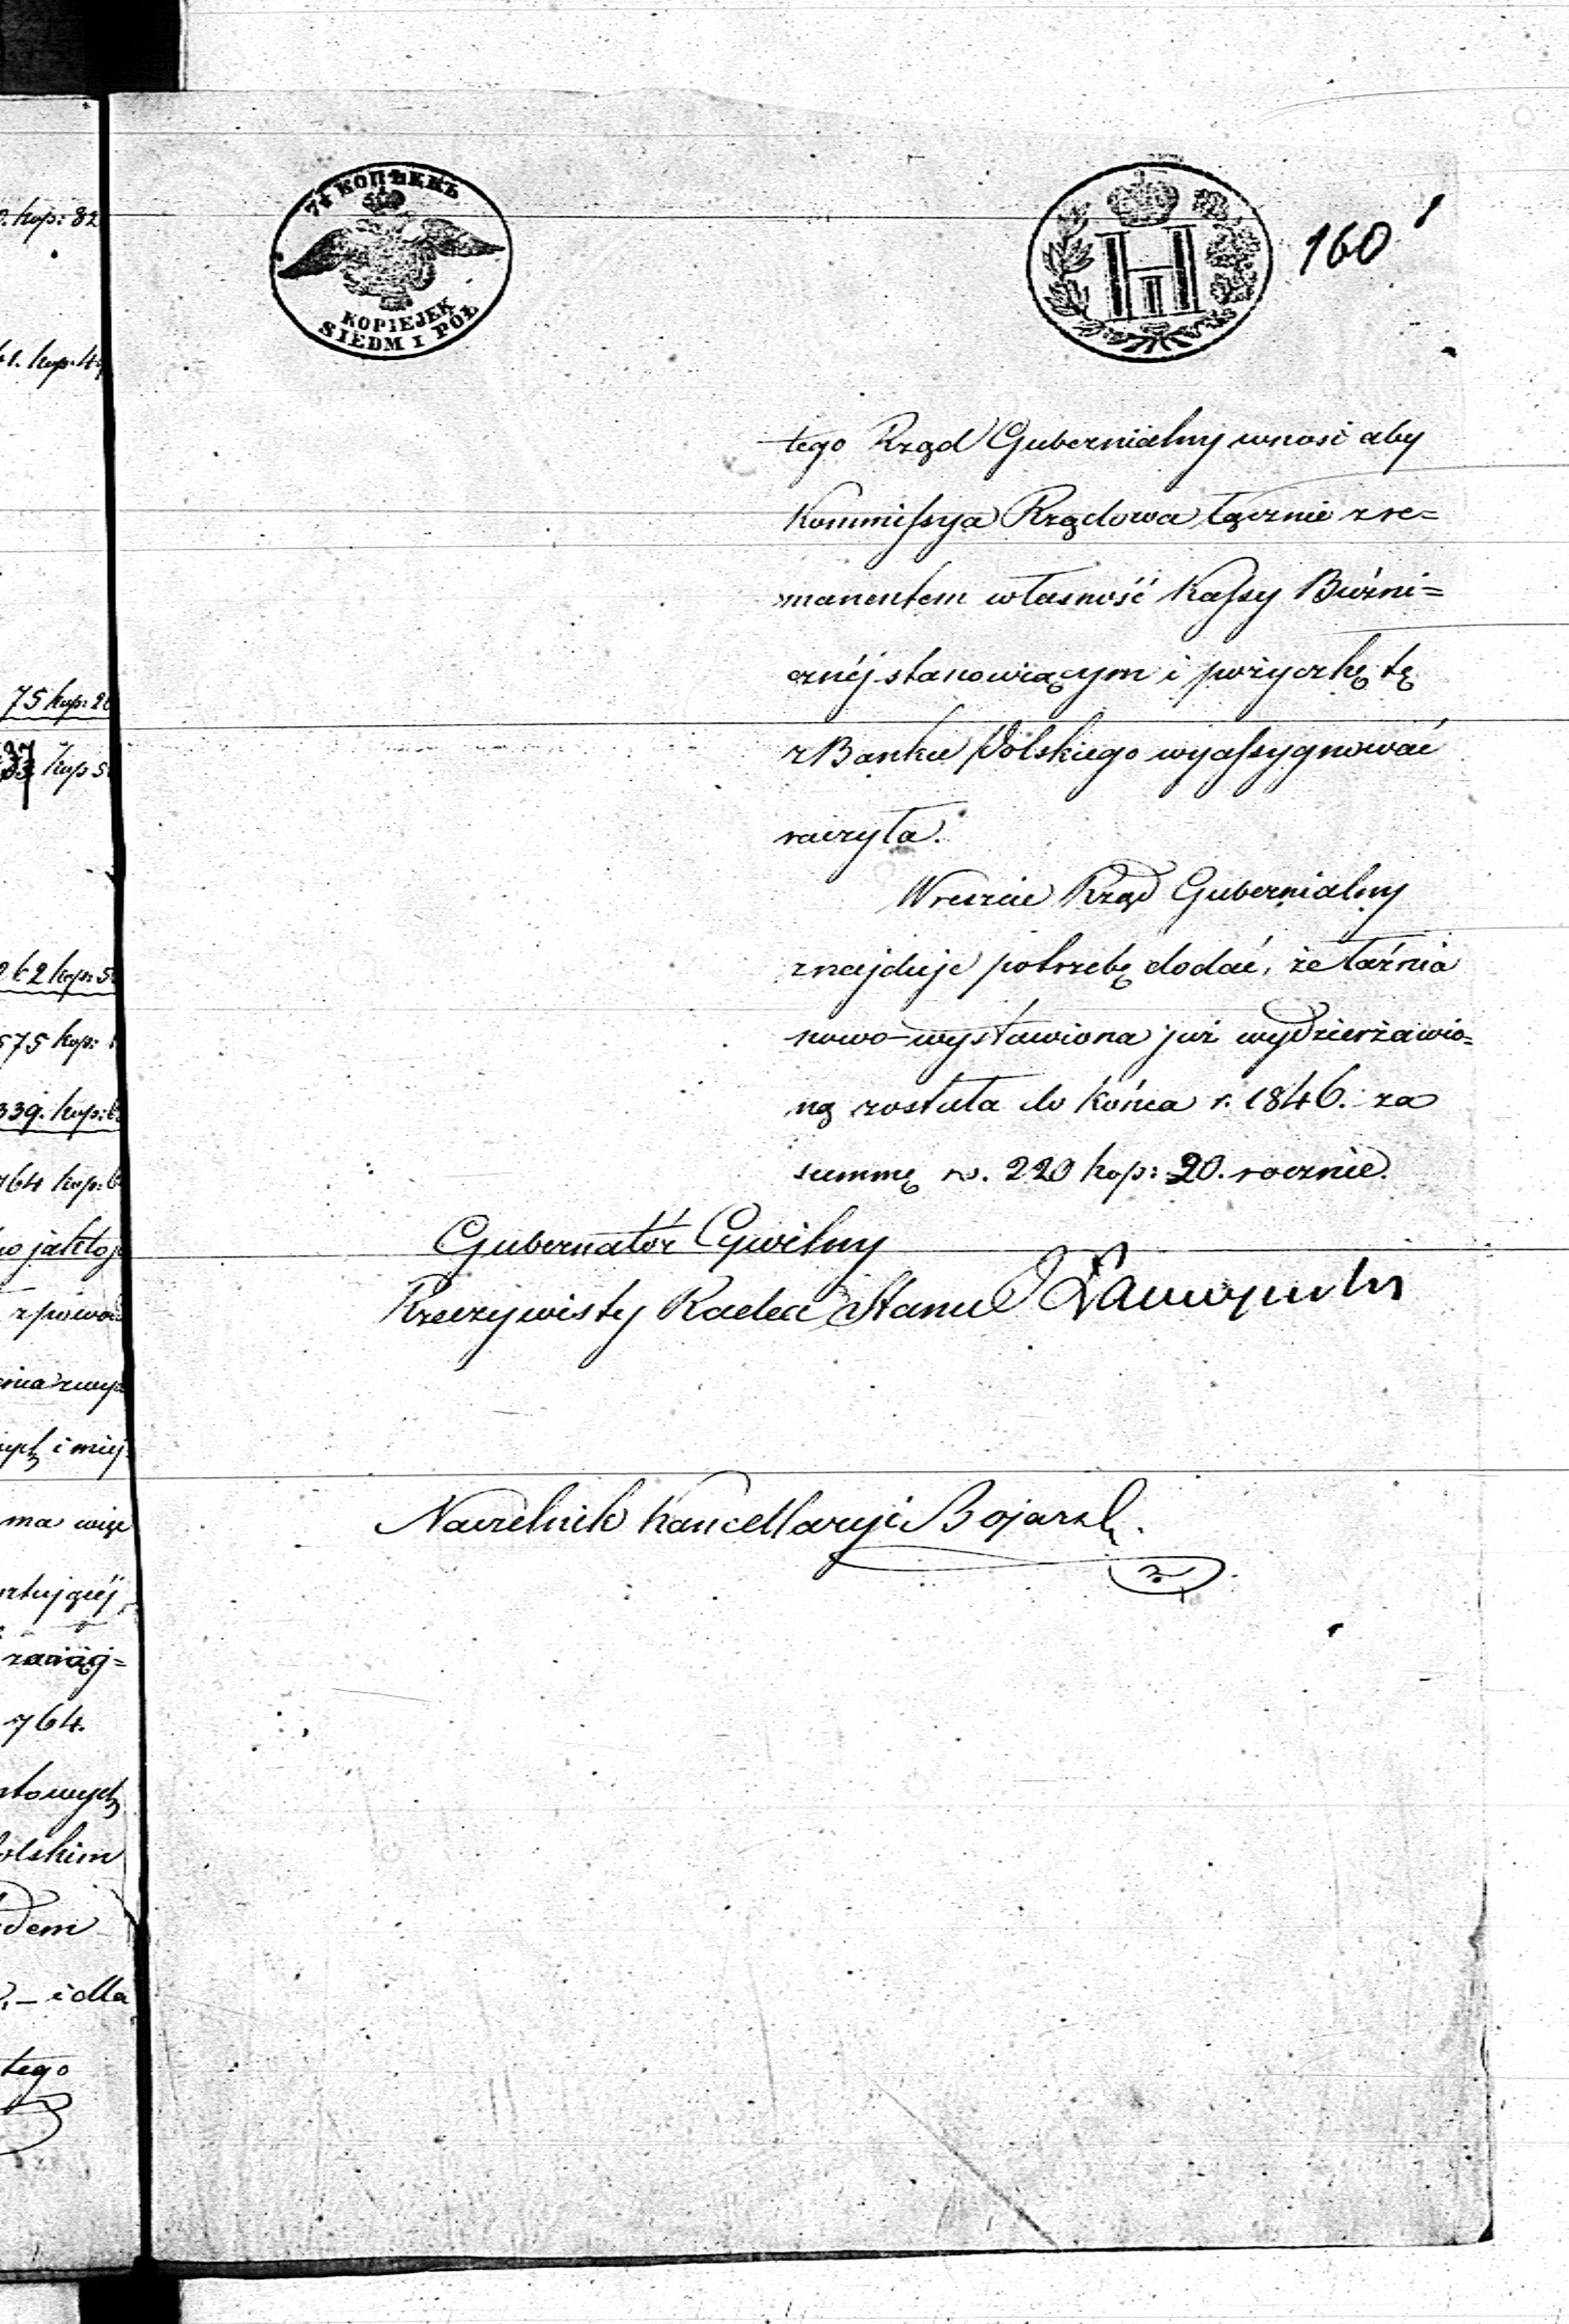 7½ КОПѢЕКЪ
KOPIEJEK
SIEDM I PÓŁ
160
tego Rząd Gubernialny wnosi aby
Kommissya Rządowa łącznie z re=
manentem własność Kassy Bóżni=
cznéj stanowiącym i pożyczkę tę
z Banku Polskiego wyassygnować
raczyła.
Wreszcie Rząd Gubernialny
znajduje potrzebę dodać, że łaźnia
nowo-wystawiona już wydzierżawio=
ną została do końca r. 1846. za
summę rs. 220 kop: 20. rocznie.
Gubernator Cywilny
Rzeczywisty Radca Stanu
Naczelnik Kancellaryi Bojarsk
0. kop: 82
1. kop. 4
75 kop: 2
37 kop 5
262 kop: 5
575 kop:
339. kop:
764 kop:
i miej
ma więc
zaciąg=
764.
olskim
i dla
tego